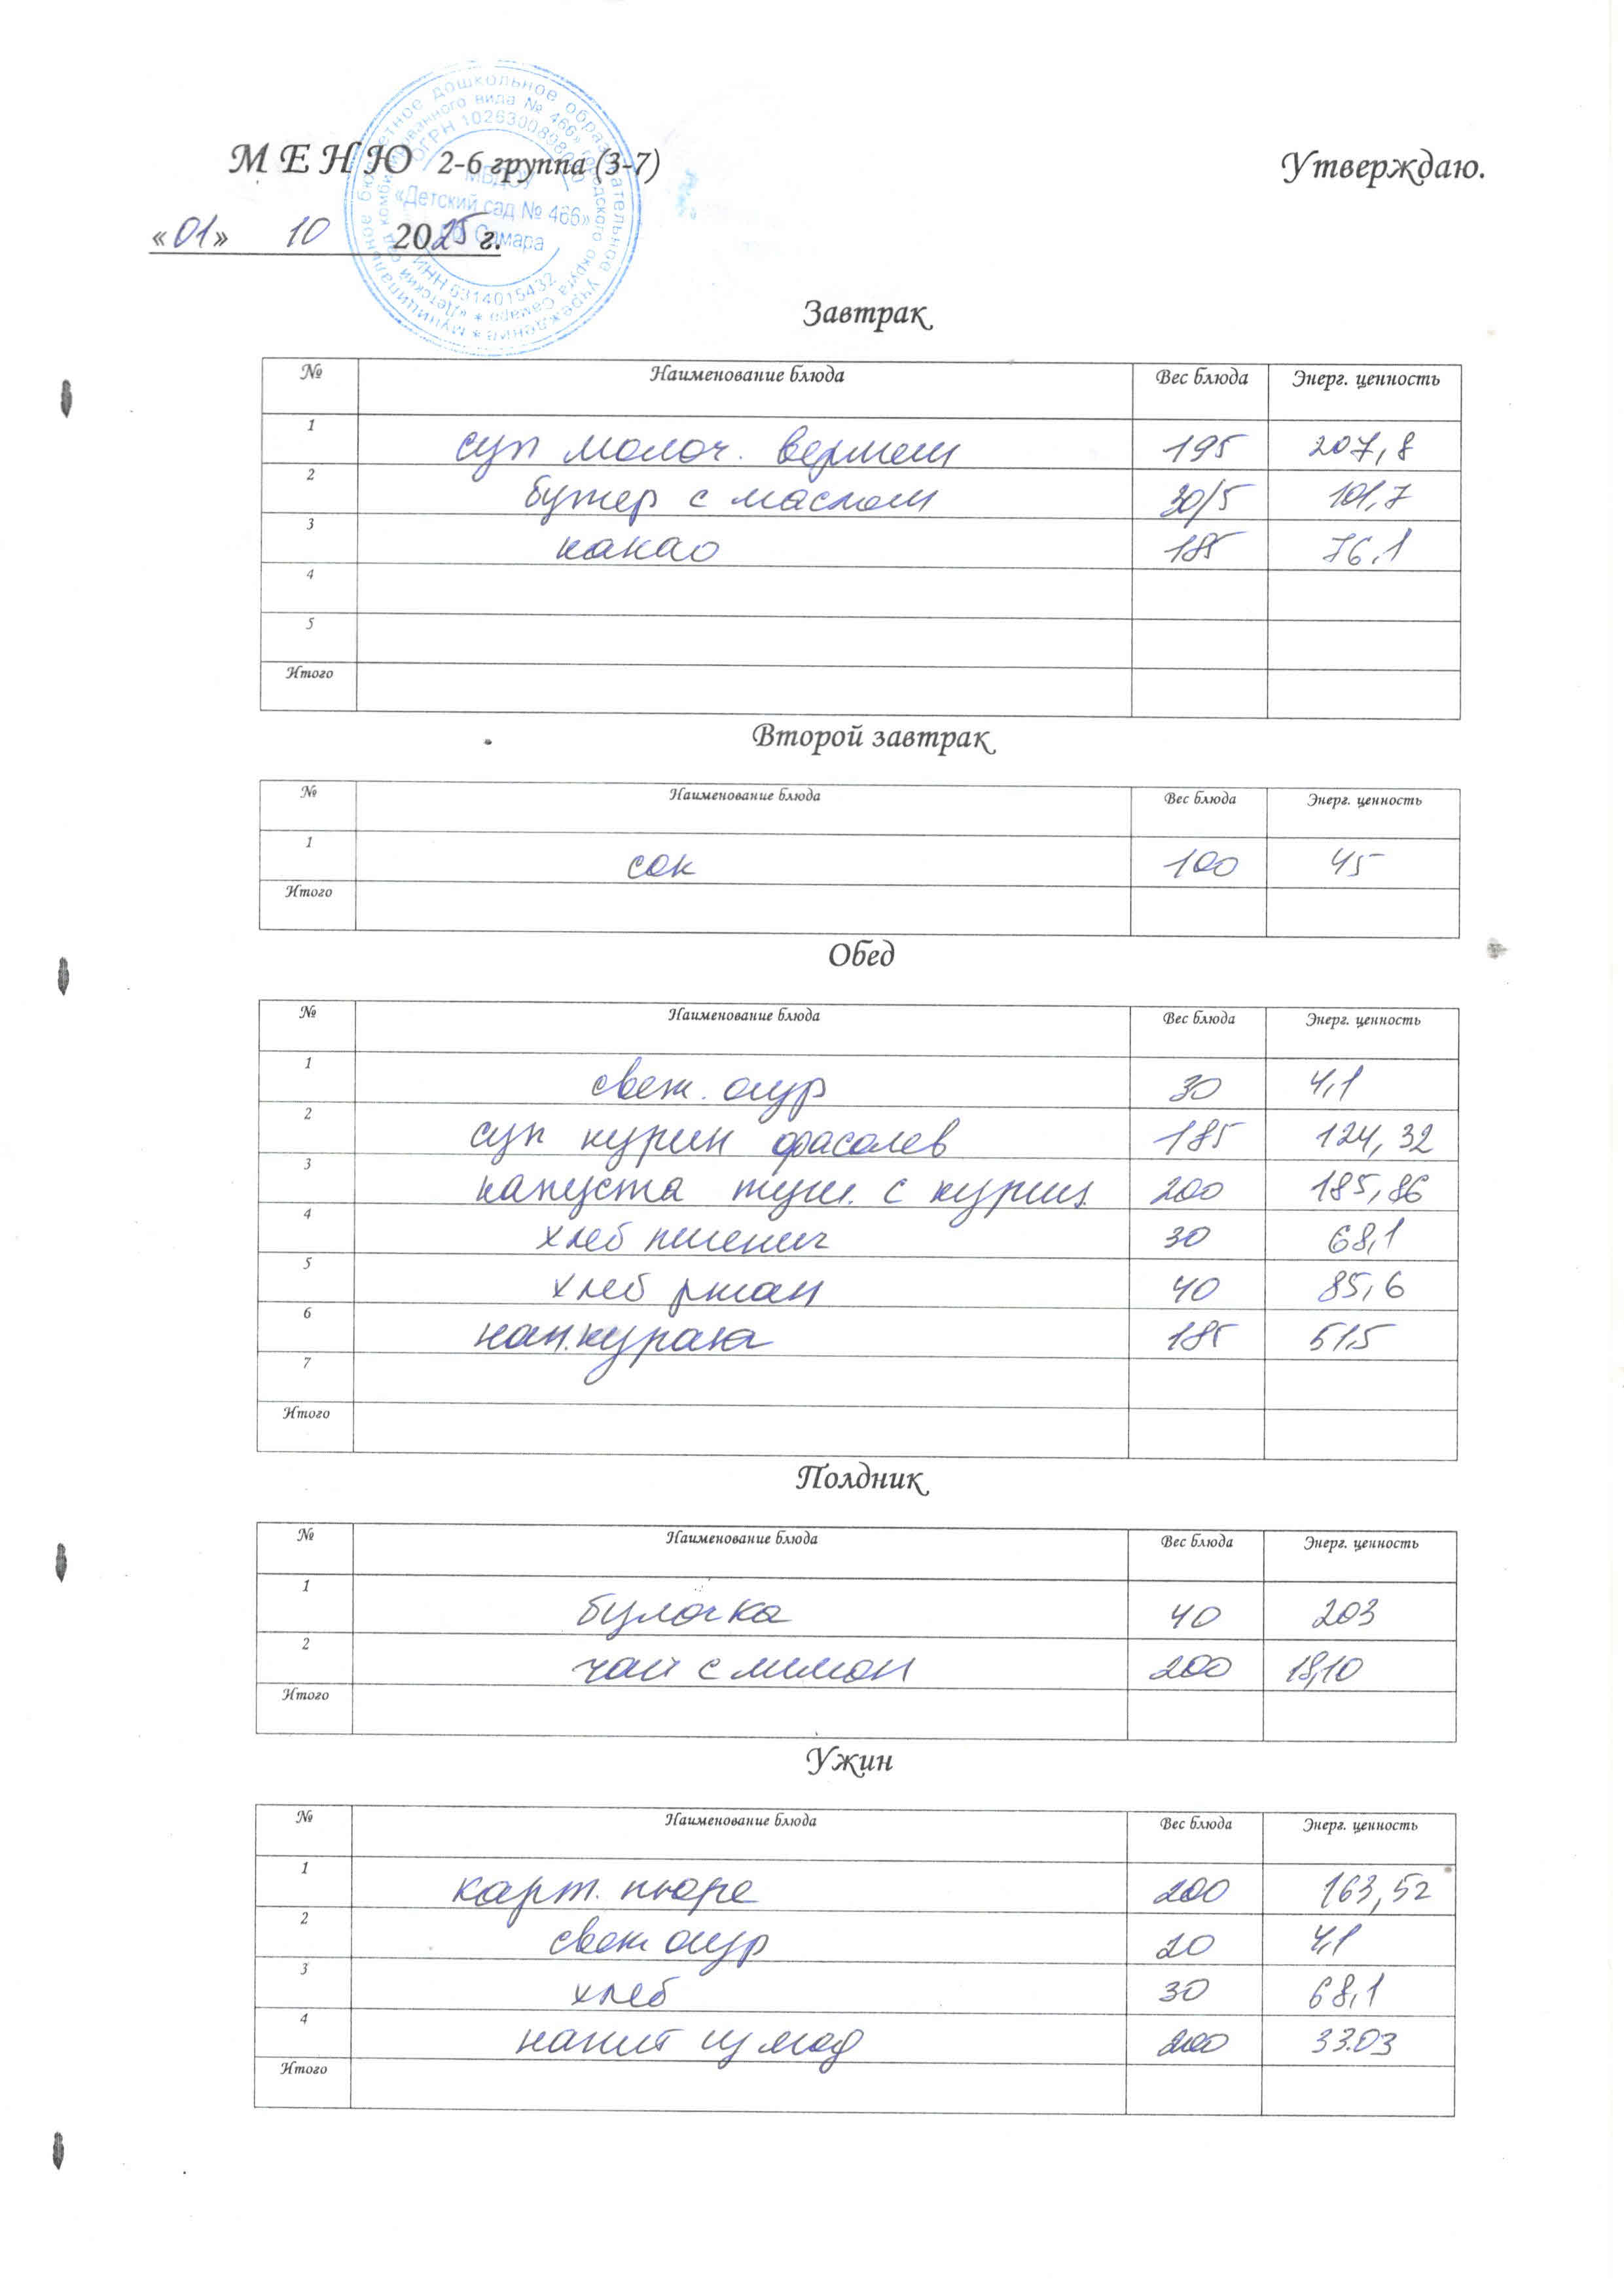 М Е Н Ю 2-6 группа (3-7) Утверждаю.
«01» 10 2025 г.
МБДОУ
«Детский сад № 466»
г.о. Самара
ИНН 6314015432
Завтрак
№ Наименование блюда Вес блюда Энерг. ценность
1 суп молоч. вермеш 195 207,8
2 бутер с маслом 30/5 101,7
3 какао 185 76,1
4
5
Итого
Второй завтрак
№ Наименование блюда Вес блюда Энерг. ценность
1 сок 100 45
Итого
Обед
№ Наименование блюда Вес блюда Энерг. ценность
1 свеж. огур 30 4,1
2 суп курин фасолев 185 124,32
3 капуста туш. с куриц 200 185,86
4 хлеб пшенич 30 68,1
5 хлеб ржан 40 85,6
6 нап. курага 185 51,5
7
Итого
Полдник
№ Наименование блюда Вес блюда Энерг. ценность
1 булочка 40 203
2 чай с лимон 200 18,10
Итого
Ужин
№ Наименование блюда Вес блюда Энерг. ценность
1 карт. пюре 200 163,52
2 свеж огур 20 4,1
3 хлеб 30 68,1
4 напит из ягод 200 33.03
Итого